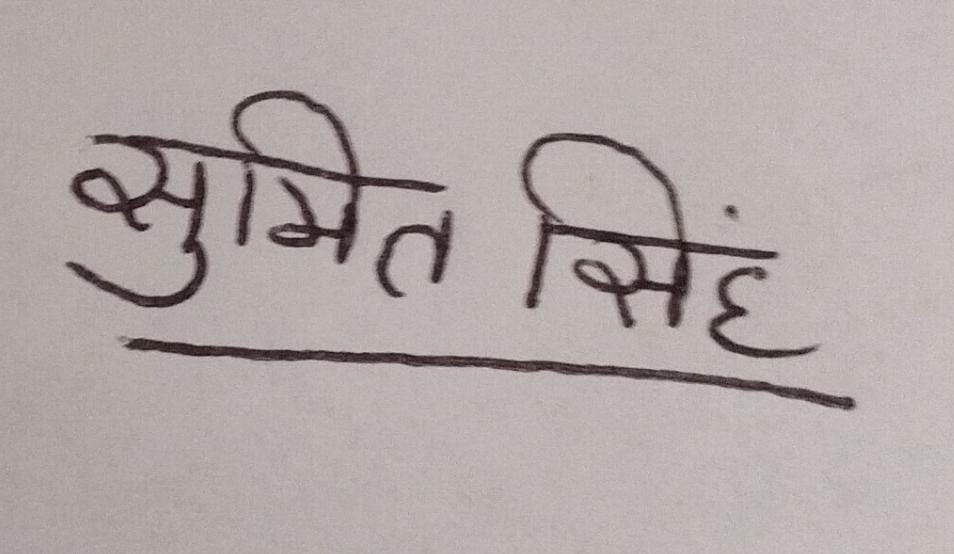 सुमित सिंह